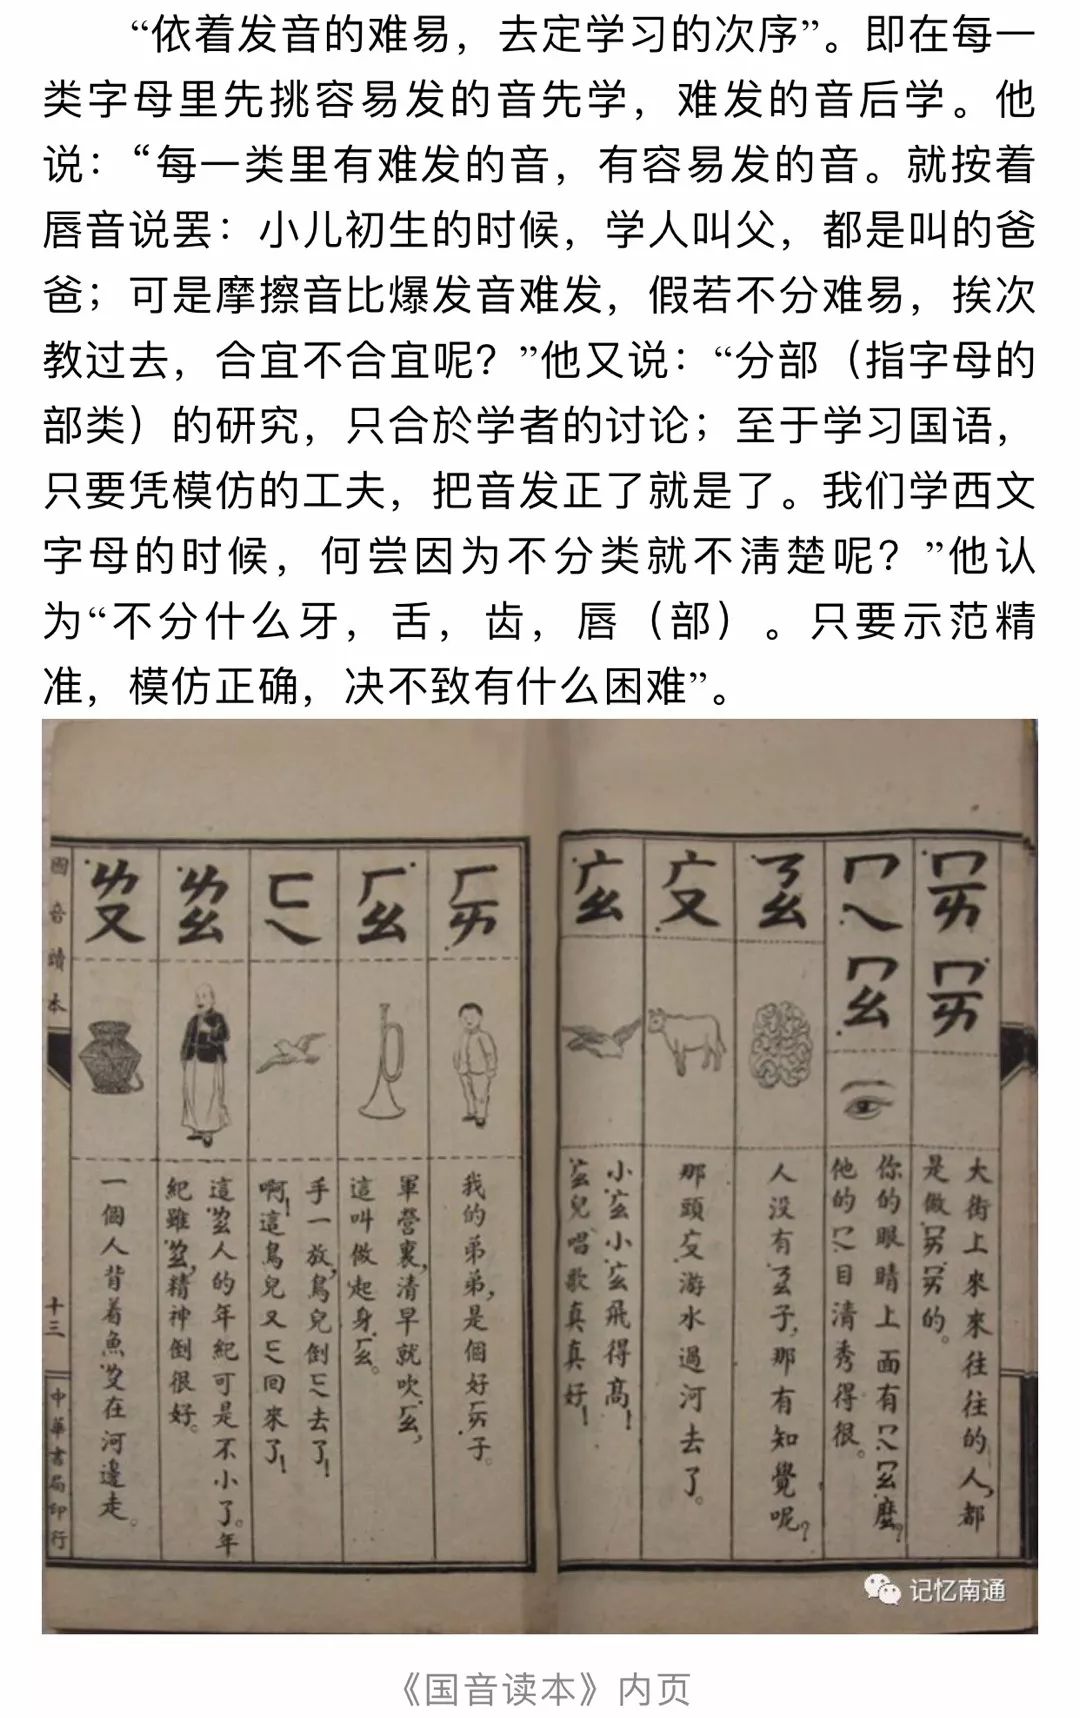 “依着发音的难易，去定学习的次序”。即在每一
类字母里先挑容易发的音先学，难发的音后学。他
说：“每一类里有难发的音，有容易发的音。就按着
唇音说罢：小儿初生的时候，学人叫父，都是叫的爸
爸；可是摩擦音比爆发音难发，假若不分难易，挨次
教过去，合宜不合宜呢？”他又说：“分部（指字母的
部类）的研究，只合於学者的讨论；至于学习国语，
只要凭模仿的工夫，把音发正了就是了。我们学西文
字母的时候，何尝因为不分类就不清楚呢？”他认
为“不分什么牙，舌，齿，唇（部）。只要示范精
准，模仿正确，决不致有什么困难”。
ㄇㄞ
ㄇㄞ
大街上來來往往的人，都
是做ㄇㄞㄇㄞ的。
ㄇㄟ
ㄇㄠ
你的眼睛上面有ㄇㄟㄇㄠ麼？
他的ㄇㄟ目清秀得很。
ㄋㄠ
人没有ㄋㄠ子，那有知覺呢？
ㄡ
那頭ㄡ游水過河去了。
ㄠ
小ㄠ小ㄠ飛得高！
ㄠ兒唱歌真真好！
ㄏㄞ
我的弟弟，是個好ㄏㄞ子。
ㄏㄠ
軍營裏，清早就吹ㄏㄠ，
這叫做起身ㄏㄠ。
ㄈㄟ
手一放，鳥兒倒ㄈㄟ去了！
啊！這鳥兒又ㄈㄟ回來了！
ㄌㄠ
這ㄌㄠ人的年紀可是不小了。年
紀雖ㄌㄠ，精神倒很好。
ㄌㄡ
一個人背着魚ㄌㄡ在河邊走。
國音讀本
十三
中華書局印行
记忆南通
《国音读本》内页